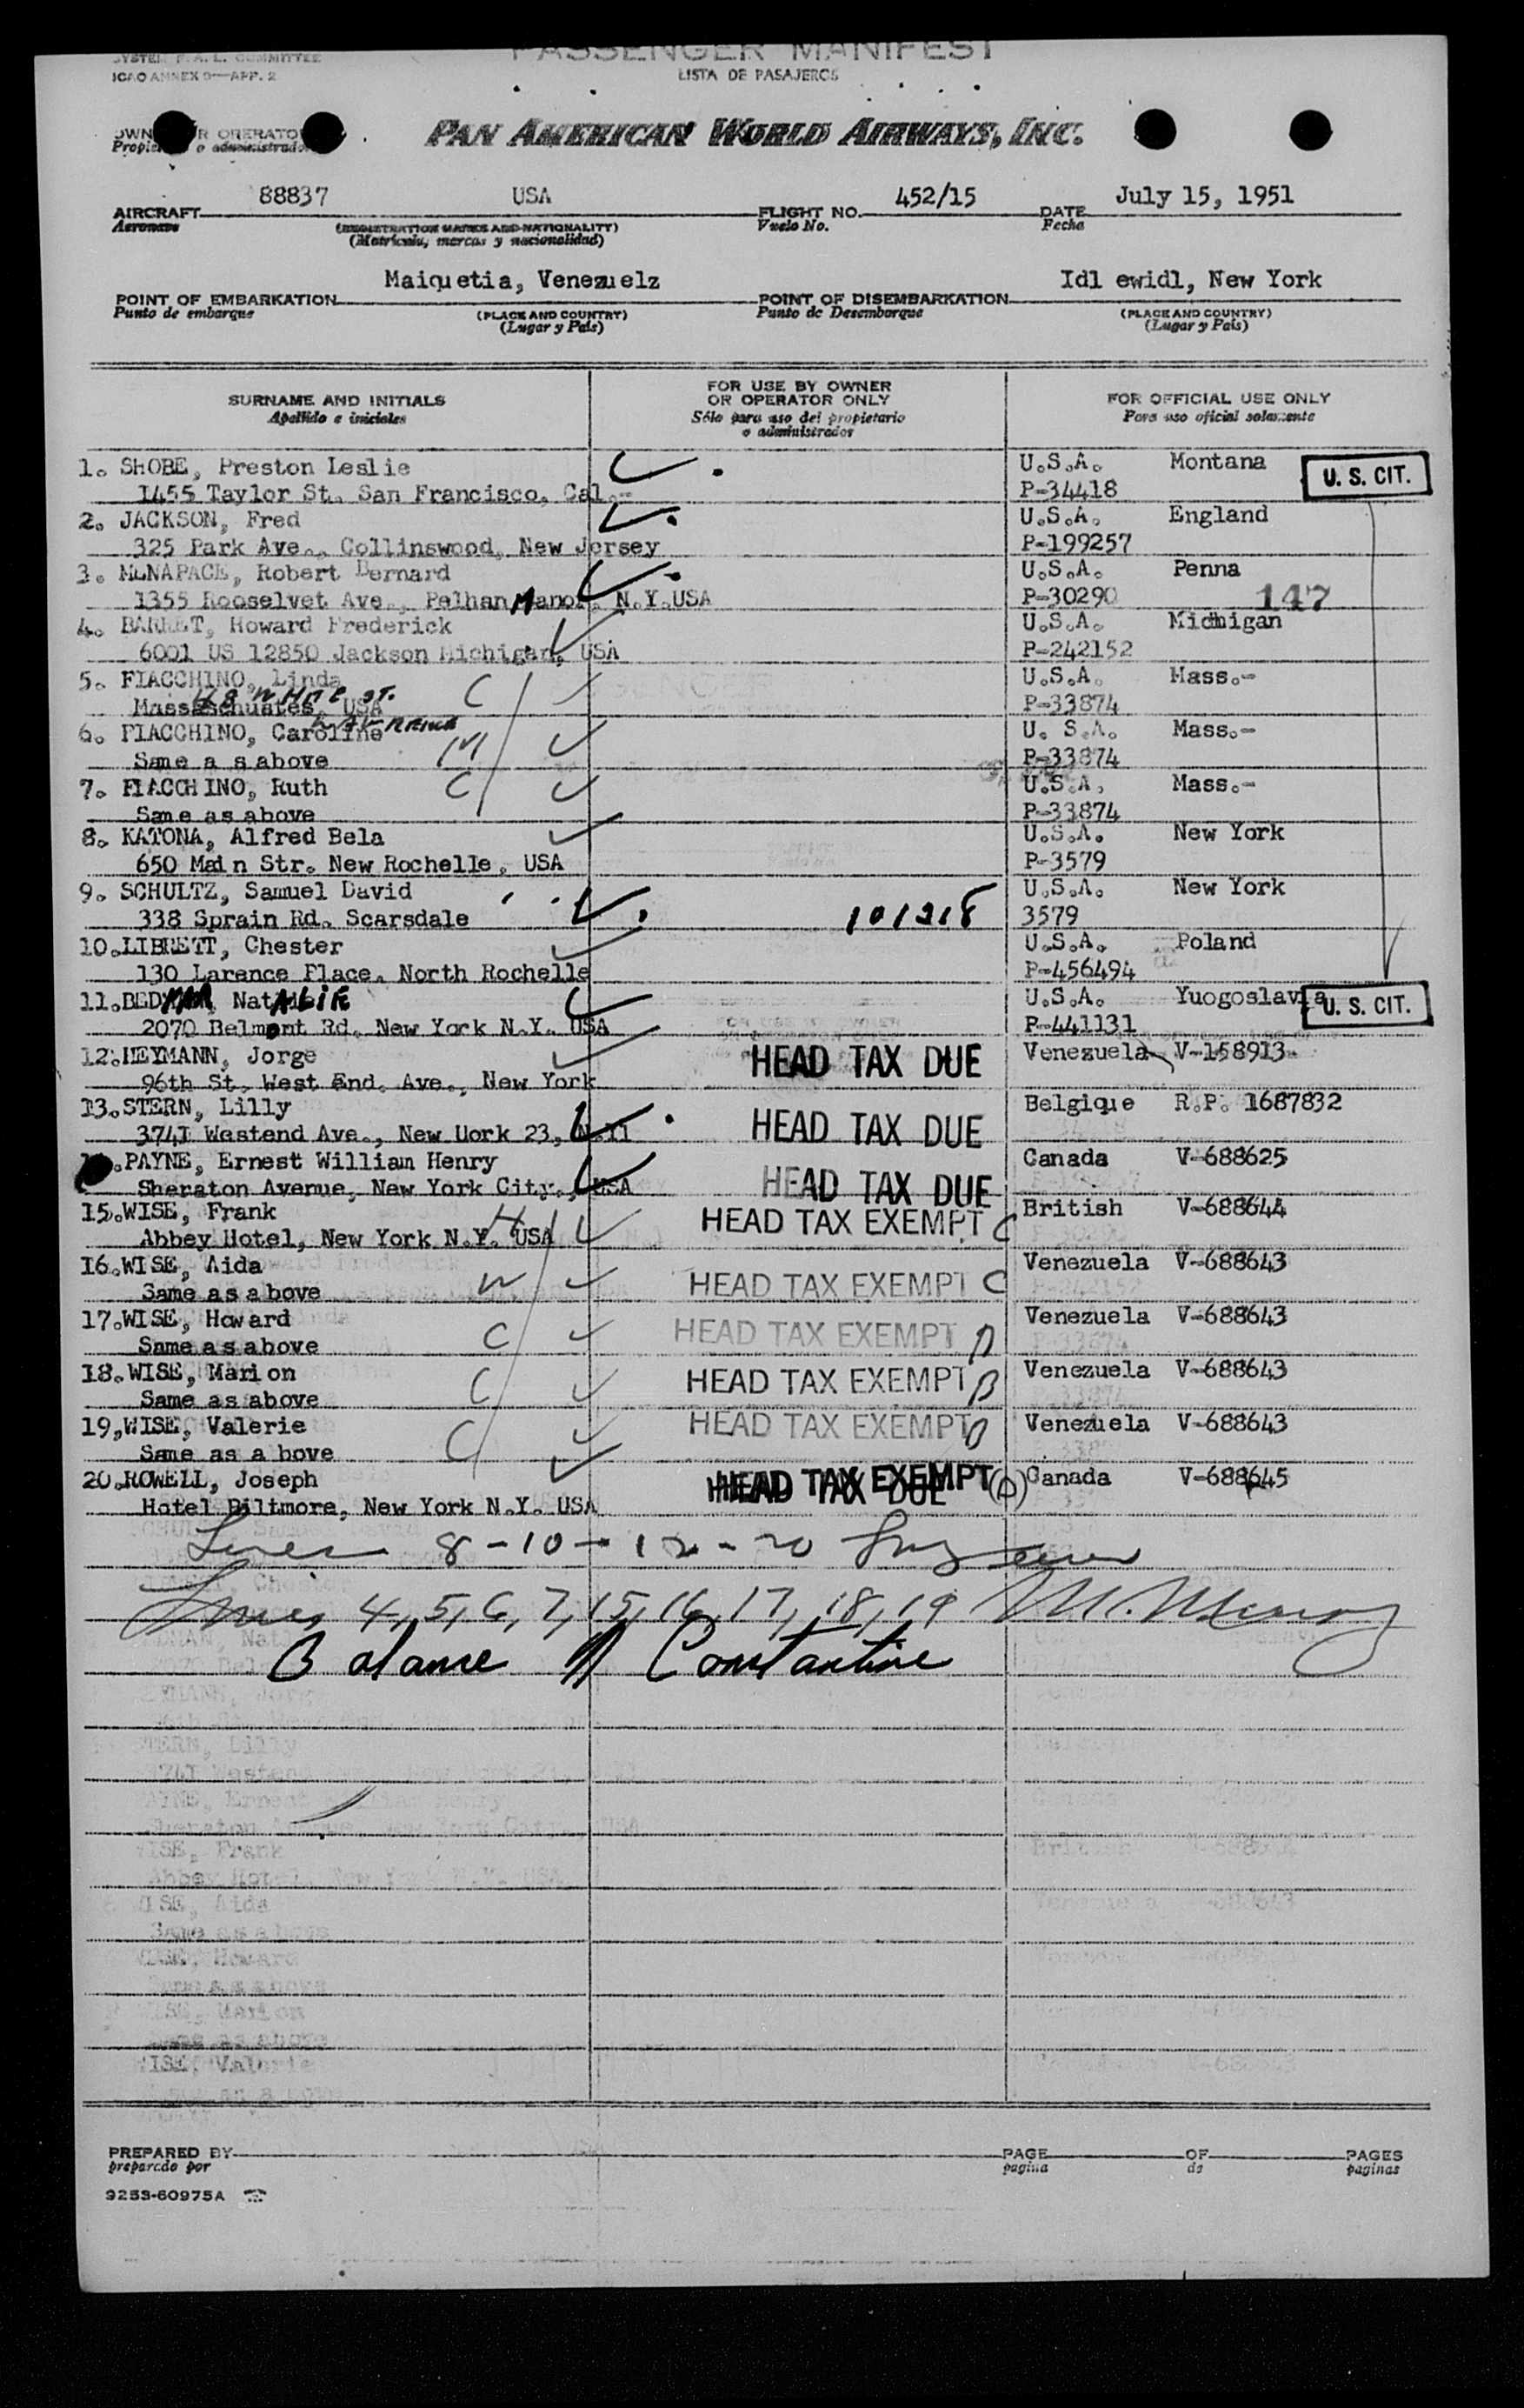 PASSENGER MANIFEST
LISTA DE PASAJEROS
SYSTEM F.A.L. COMMITTEE
ICAO ANNEX 9—APP. 2
OWNER OR OPERATOR
Propietario o administrador
PAN AMERICAN WORLD AIRWAYS, INC.
AIRCRAFT 88837 USA FLIGHT NO. 452/15 DATE July 15, 1951
Aeronave (REGISTRATION MARKS AND NATIONALITY) Vuelo No. Fecha
(Matrícula, marcas y nacionalidad)
POINT OF EMBARKATION Maiquetia, Venezuelz POINT OF DISEMBARKATION Idl ewidl, New York
Punto de embarque (PLACE AND COUNTRY) Punto de Desembarque (PLACE AND COUNTRY)
(Lugar y País) (Lugar y País)
SURNAME AND INITIALS FOR USE BY OWNER OR OPERATOR ONLY FOR OFFICIAL USE ONLY
Apellido e iniciales Sólo para uso del propietario o administrador Para uso oficial solamente
1. SHOBE, Preston Leslie U.S.A. Montana U. S. CIT.
1455 Taylor St. San Francisco, Cal.- P-34418
2. JACKSON, Fred U.S.A. England
325 Park Ave., Collinswood, New Jersey P-199257
3. MENAPACE, Robert Bernard U.S.A. Penna
1355 Rooselvet Ave., Pelhan Manor, N.Y.USA P-30290 147
4. Howard Frederick U.S.A. Michigan
6001 US 12850 Jackson Michigan, USA P-242152
5. FIACCHINO, Linda C U.S.A. Mass.-
48 WHITE ST.
Massaschuates, USA P-33874
LAWRENCE
6. FIACCHINO, Caroline M U. S.A. Mass.-
Same a s above P-33874
7. FIACCHINO, Ruth C U.S.A. Mass.-
Same as above P-33874
8. KATONA, Alfred Bela U.S.A. New York
650 Main Str. New Rochelle, USA P-3579
9. SCHULTZ, Samuel David U.S.A. New York
338 Sprain Rd. Scarsdale 101218 3579
10.LIBRETT, Chester U.S.A. Poland
130 Larence Place, North Rochelle P-456494
11. NatALiE U.S.A. Yuogoslavia U. S. CIT.
2070 Belmont Rd. New York N.Y. USA P-441131
12.HEYMANN, Jorge HEAD TAX DUE Venezuela V-158913
96th St. West End. Ave., New York
13.STERN, Lilly HEAD TAX DUE Belgique R.P. 1687832
3741 Westend Ave., New Uork 23,
.PAYNE, Ernest William Henry HEAD TAX DUE Canada V-688625
Sheraton Avenue, New York City., USA
15.WISE, Frank H HEAD TAX EXEMPT C British V-688644
Abbey Hotel, New York N.Y. USA
16.WISE, Aida W HEAD TAX EXEMPT C Venezuela V-688643
Same as above
17.WISE, Howard C HEAD TAX EXEMPT Venezuela V-688643
Same as above
18.WISE, Marion C HEAD TAX EXEMPT B Venezuela V-688643
Same as above
19,WISE, Valerie C HEAD TAX EXEMPT Venezuela V-688643
Same as a bove
20.ROWELL, Joseph HEAD TAX EXEMPT (A) Canada V-688645
HEAD TAX DUE
Hotel Biltmore, New York N.Y. USA
8-10-12-20
Lines 4, 5, 6, 7, 15, 16, 17, 18, 19
Balance N Constantine
PREPARED BY PAGE OF PAGES
preparado por pagina de paginas
9253-60975A